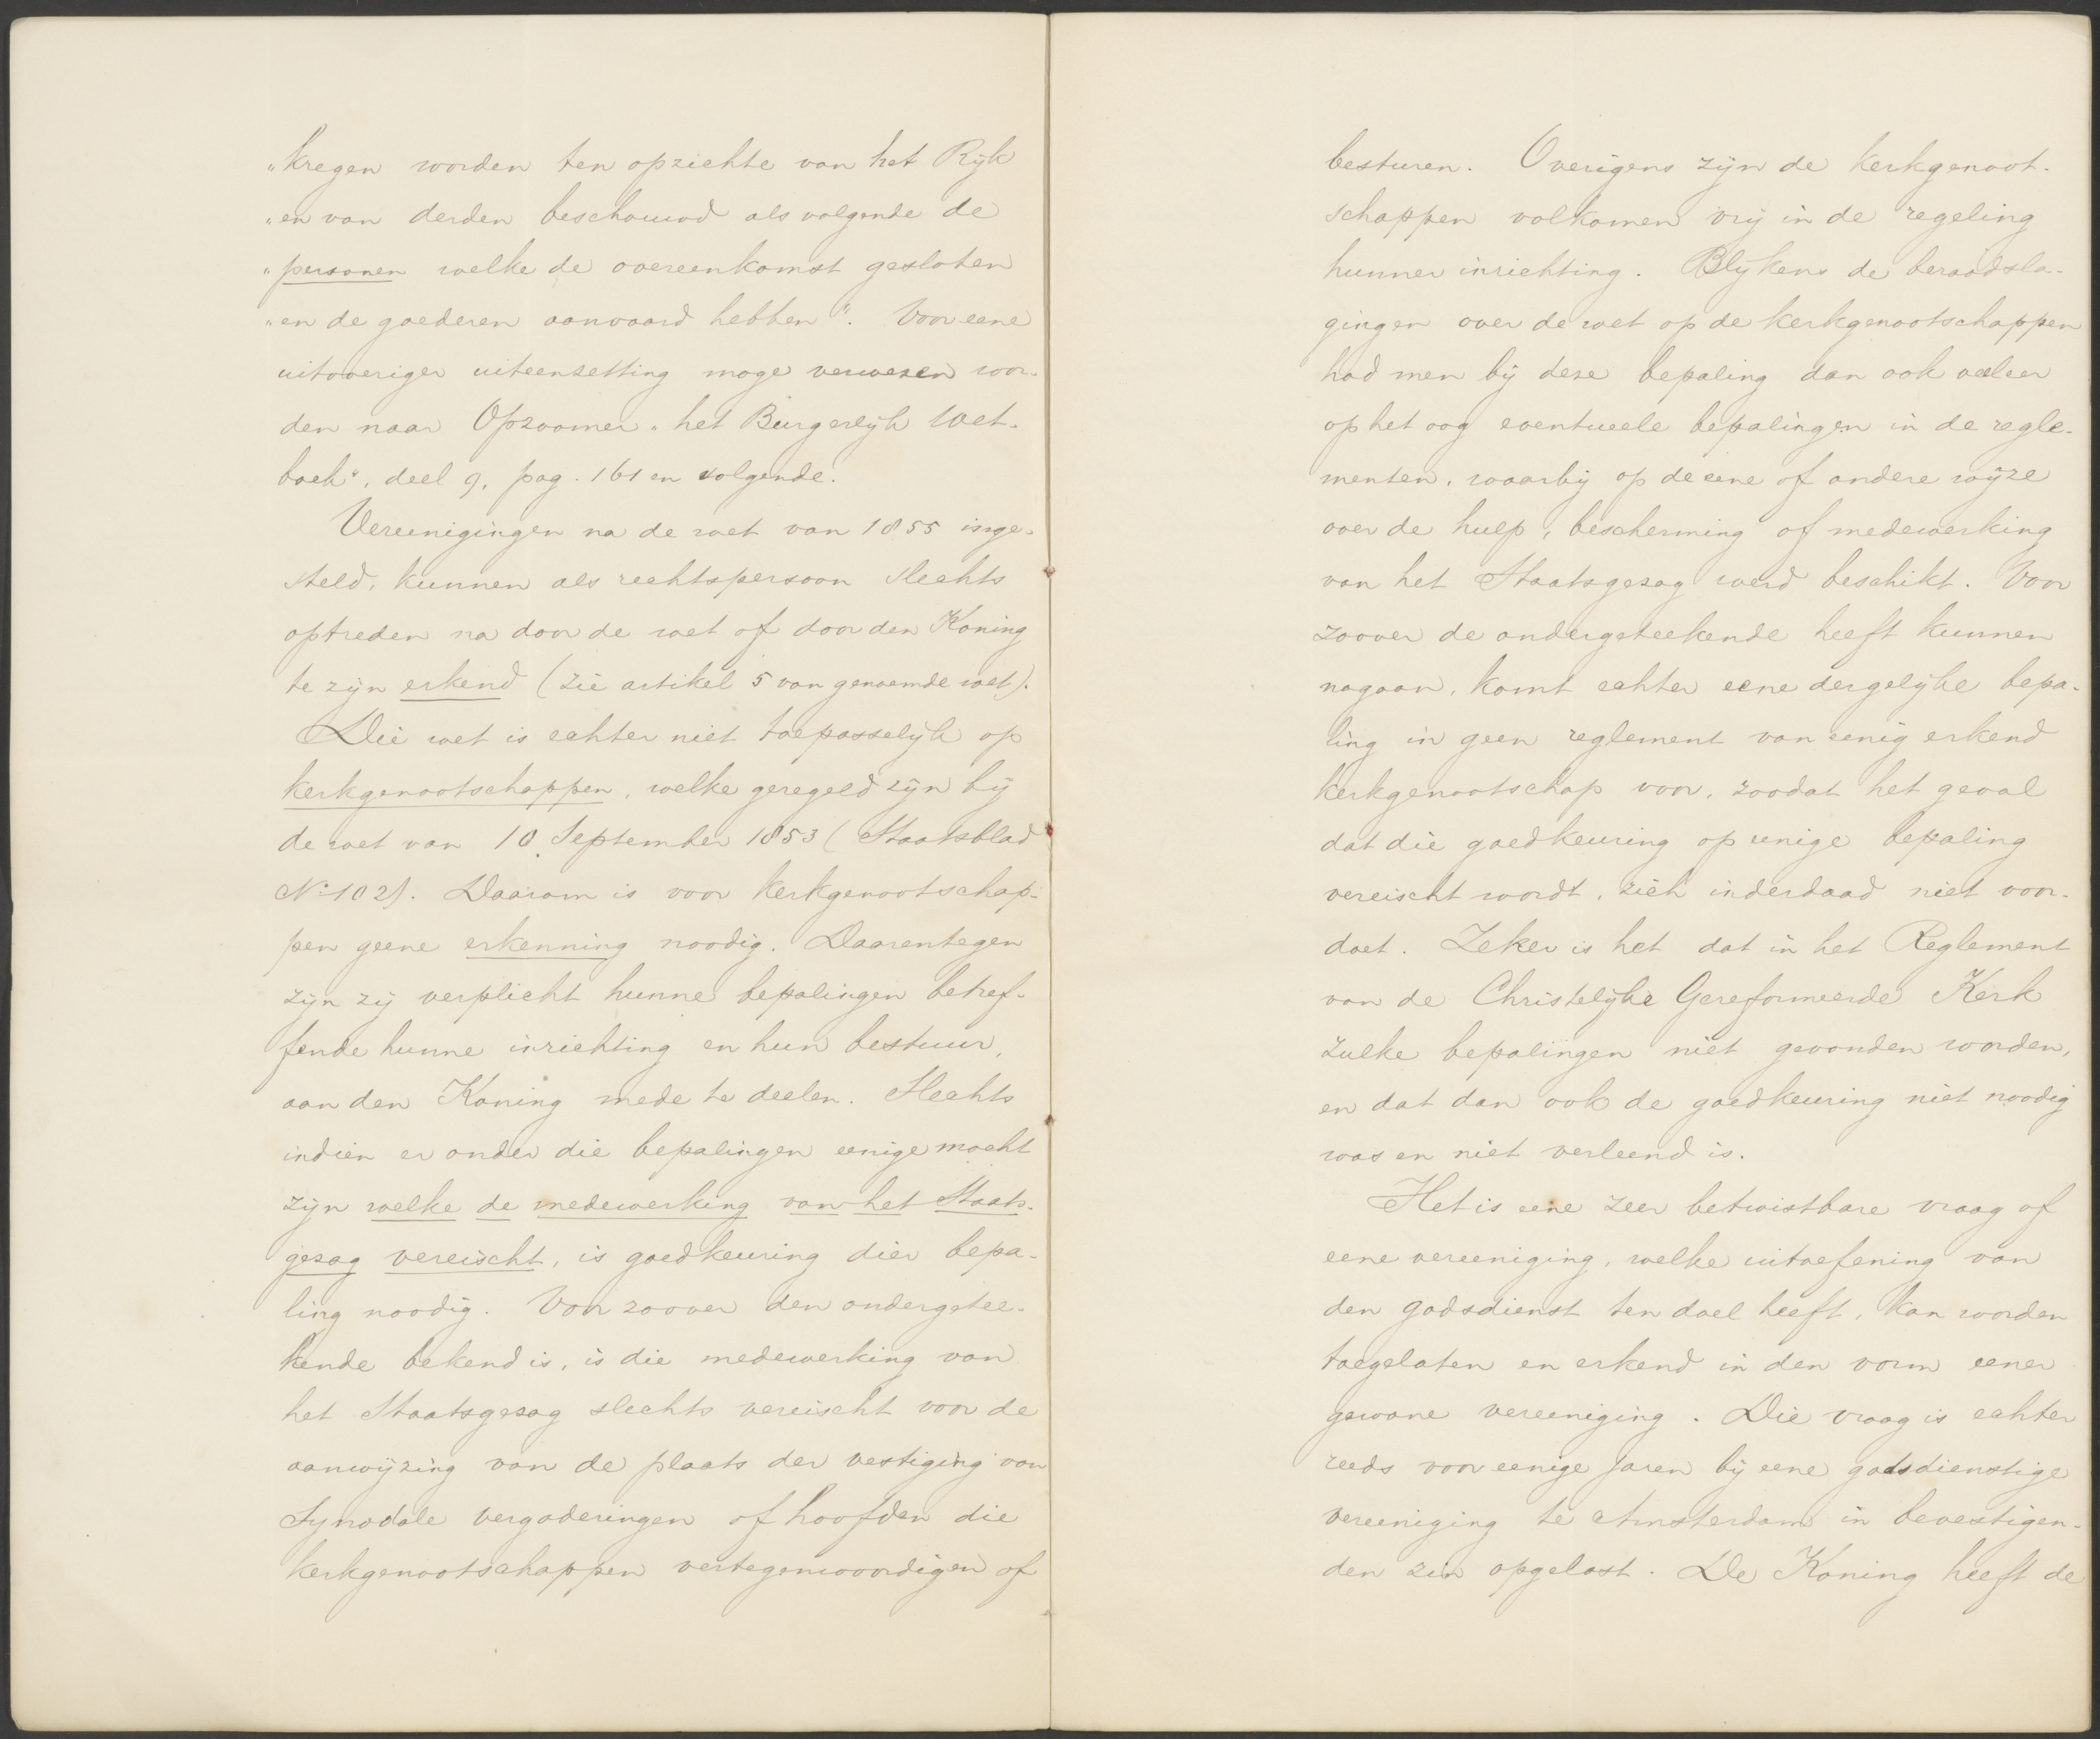 „kregen worden ten opzichte van het Rijk
„en van derden beschouwd als volgende de
„personen welke de overeenkomst gesloten
„en de goederen aanvaard hebben". Voor eene
uitvoeriger uiteenzetting moge verwezen wor-
den naar Opzoomer „het Burgerlijk Wet-
boek", deel 9, pag. 161 en volgende.
Vereenigingen na de wet van 1855 inge-
steld, kunnen als rechtspersoon slechts
optreden na door de wet of door den Koning
te zijn erkend (zie artikel 5 van genoemde wet).
Die wet is echter niet toepasselijk op
kerkgenootschappen, welke geregeld zijn bij
de wet van 10 September 1853 (Staatsblad
No. 102). Daarom is voor kerkgenootschap-
pen geene erkenning noodig. Daarentegen
zijn zij verplicht hunne bepalingen betref-
fende hunne inrichting en hun bestuur,
aan den Koning mede te deelen. Slechts
indien er onder die bepalingen eenige mocht
zijn welke de medewerking van het Staats-
gezag vereischt, is goedkeuring dier bepa-
ling noodig. Voor zoover den ondergetee-
kende bekend is, is die medewerking van
het Staatsgezag slechts vereischt voor de
aanwijzing van de plaats der vestiging van
Synodale vergaderingen of hoofden die
kerkgenootschappen vertegenwoordigen of
besturen. Overigens zijn de kerkgenoot-
schappen volkomen vrij in de regeling
hunner inrichting. Blijkens de beraadsla-
gingen over de wet op de kerkgenootschappen
had men bij deze bepaling dan ook veeleer
op het oog eventueele bepalingen in de regle-
menten, waarbij op de eene of andere wijze
over de hulp, bescherming of medewerking
van het Staatsgezag werd beschikt. Voor
zoover de ondergeteekende heeft kunnen
nagaan, komt echter eene dergelijke bepa-
ling in geen reglement van eenig erkend
kerkgenootschap voor, zoodat het geval
dat die goedkeuring op eenige bepaling
vereischt wordt, zich inderdaad niet voor-
doet. Zeker is het dat in het Reglement
van de Christelijke Gereformeerde Kerk
zulke bepalingen niet gevonden worden,
en dat dan ook de goedkeuring niet noodig
was en niet verleend is.
Het is eene zeer betwistbare vraag of
eene vereeniging, welke uitoefening van
den godsdienst ten doel heeft, kan worden
toegelaten en erkend in den vorm eener
gewone vereeniging. Die vraag is echter
reeds voor eenige jaren bij eene godsdienstige
vereeniging te Amsterdam in bevestigen-
den zin opgelost. De Koning heeft de